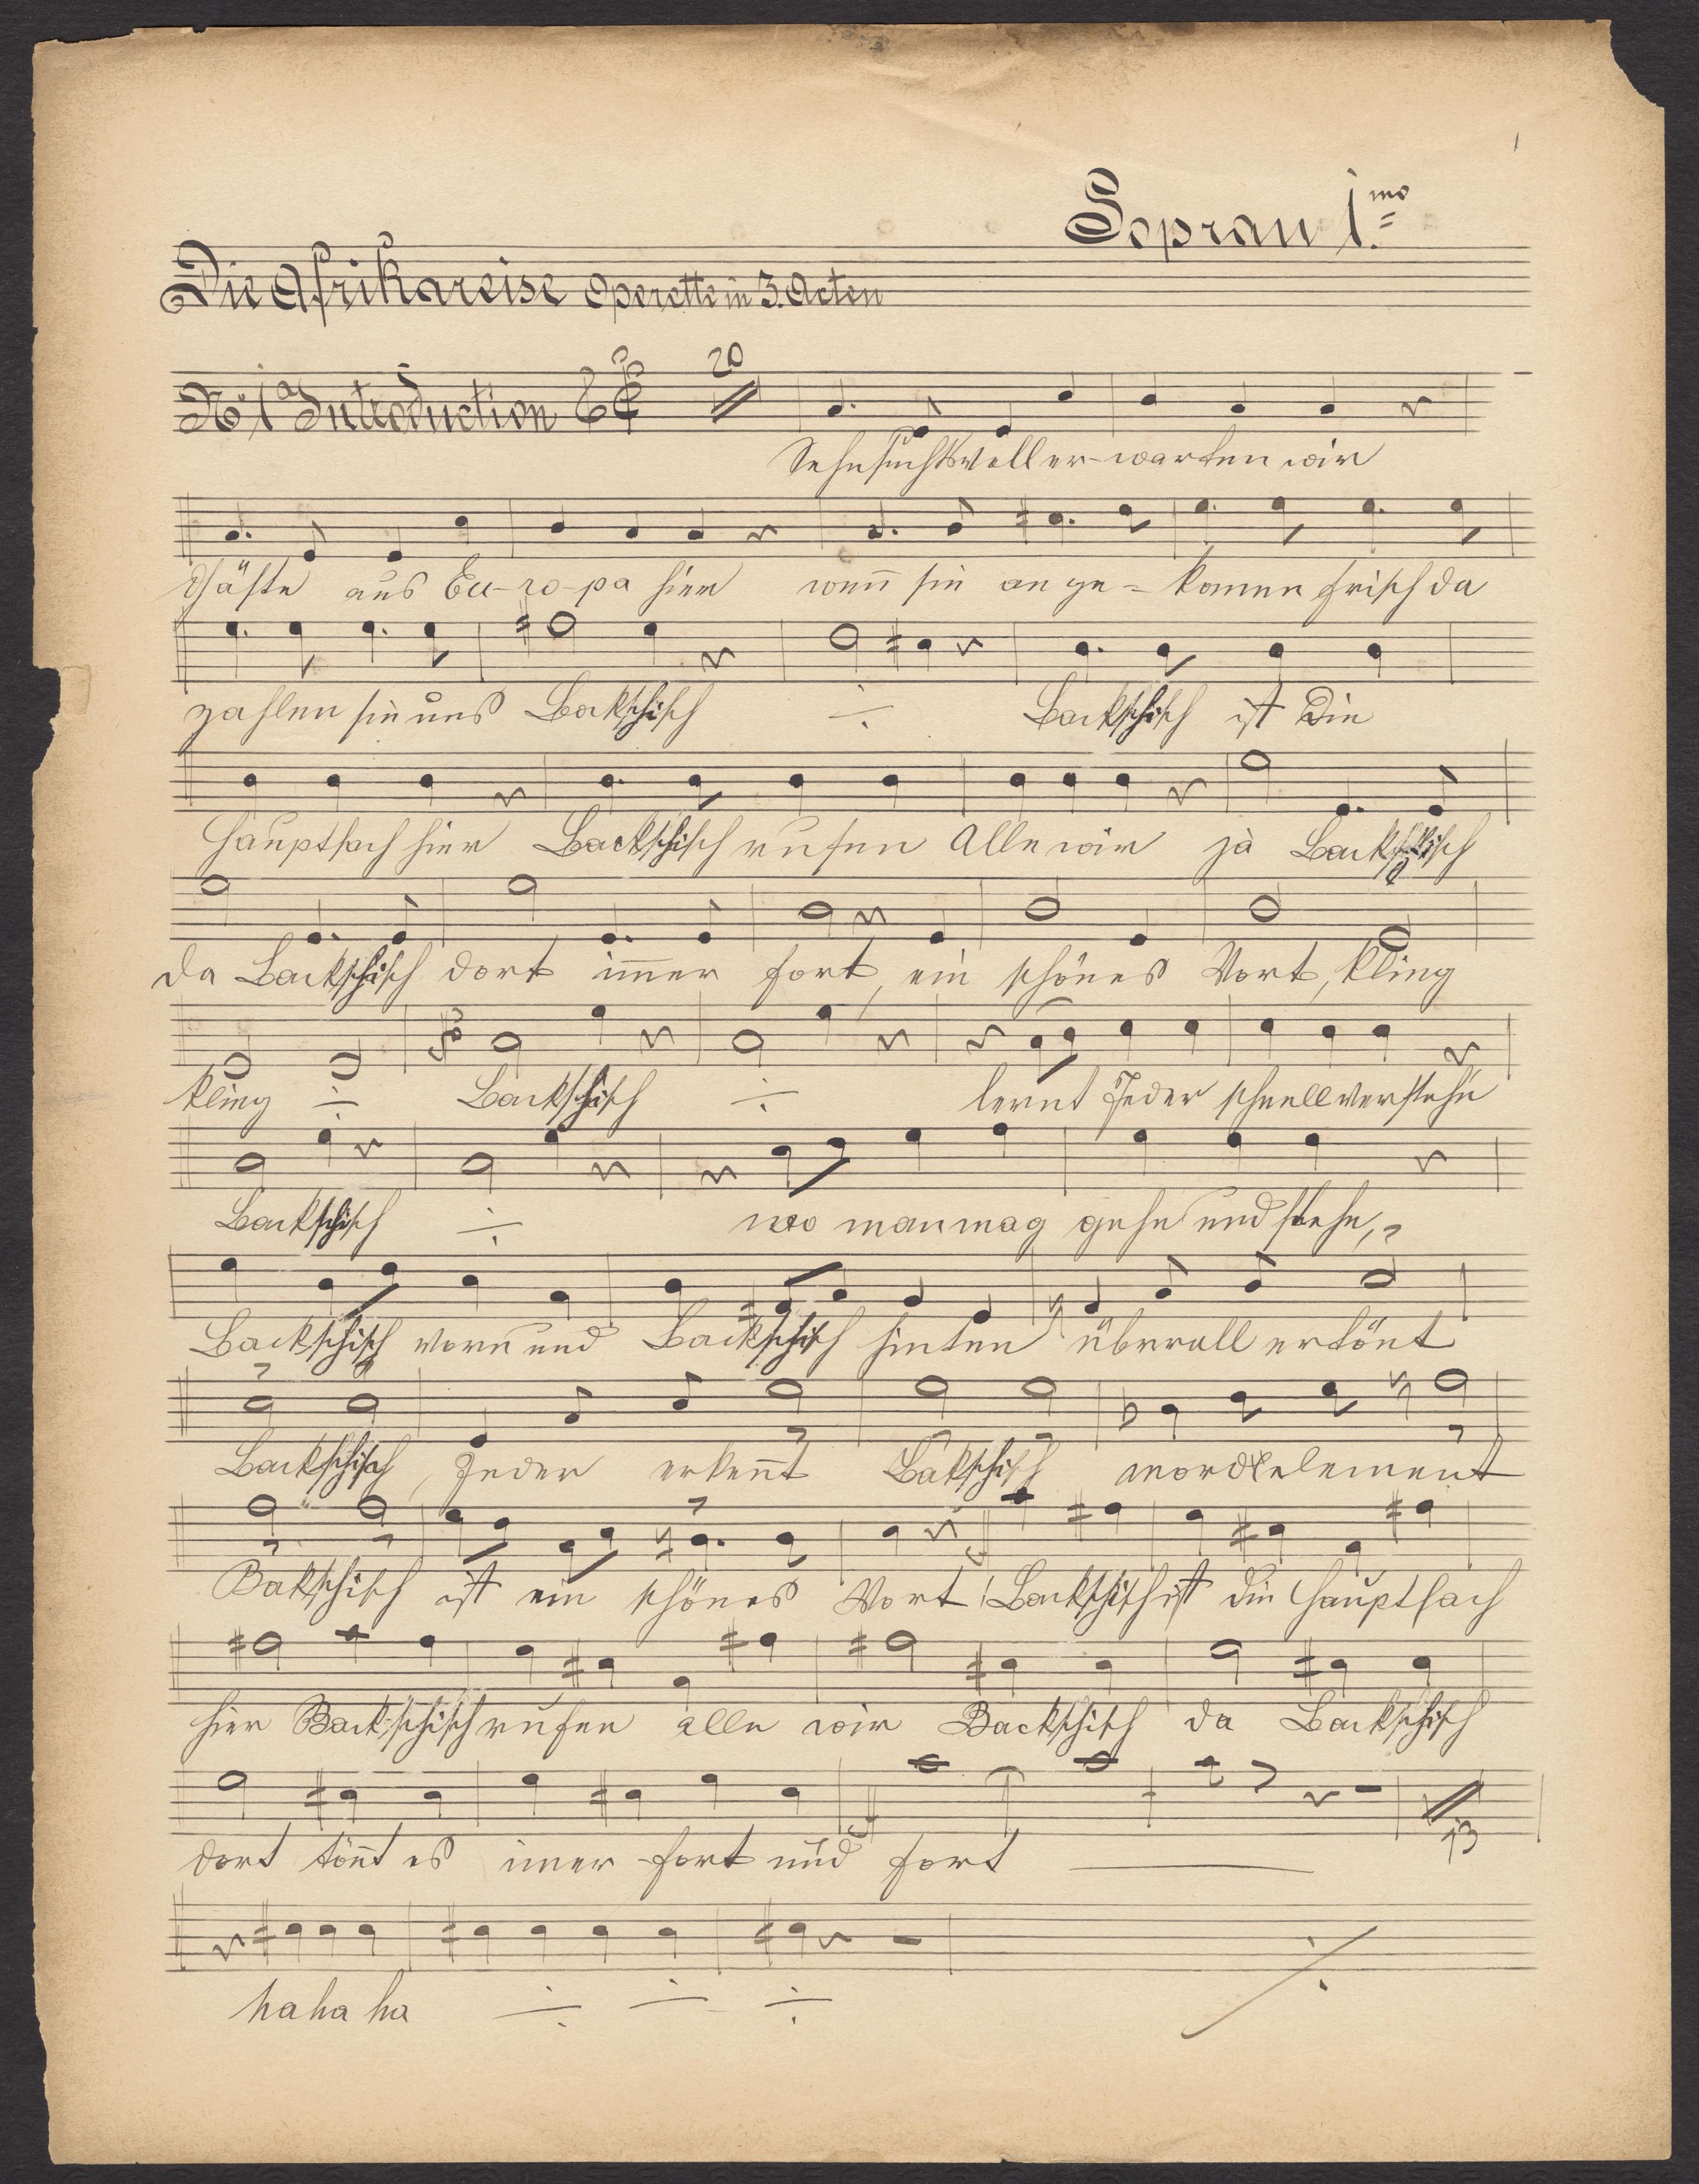 1
Sopran 1.mo
Die Afrikareise Operette in 3. Acten
No. 1a Introduction 20
Sehnsuchtsvoll er-warten wir
Gäste aus Eu-ro-pa hier wen̅ sie an ge-kom̅en frisch da
zahlen sie uns Backschisch Backschisch ist Die
Hauptsach hier Backschisch rufen Alle wir ja Backschisch
da Backschisch dort im̅er fort, ein schönes Wort, kling
kling Backschisch lernt Jeder schnell verstehn
Backschisch wo man mag gehn und stehn,
Backschisch vorn und Backschisch hinten überall ertönt
Backschisch, Jeder erken̅t Bakschisch mordelement
Bakschisch ist ein schönes Wort! Backschisch ist die Hauptsach
hier Backschisch rufen alle wir Backschisch da Backschisch
dort tön̅t es im̅er fort und fort
13
ha ha ha